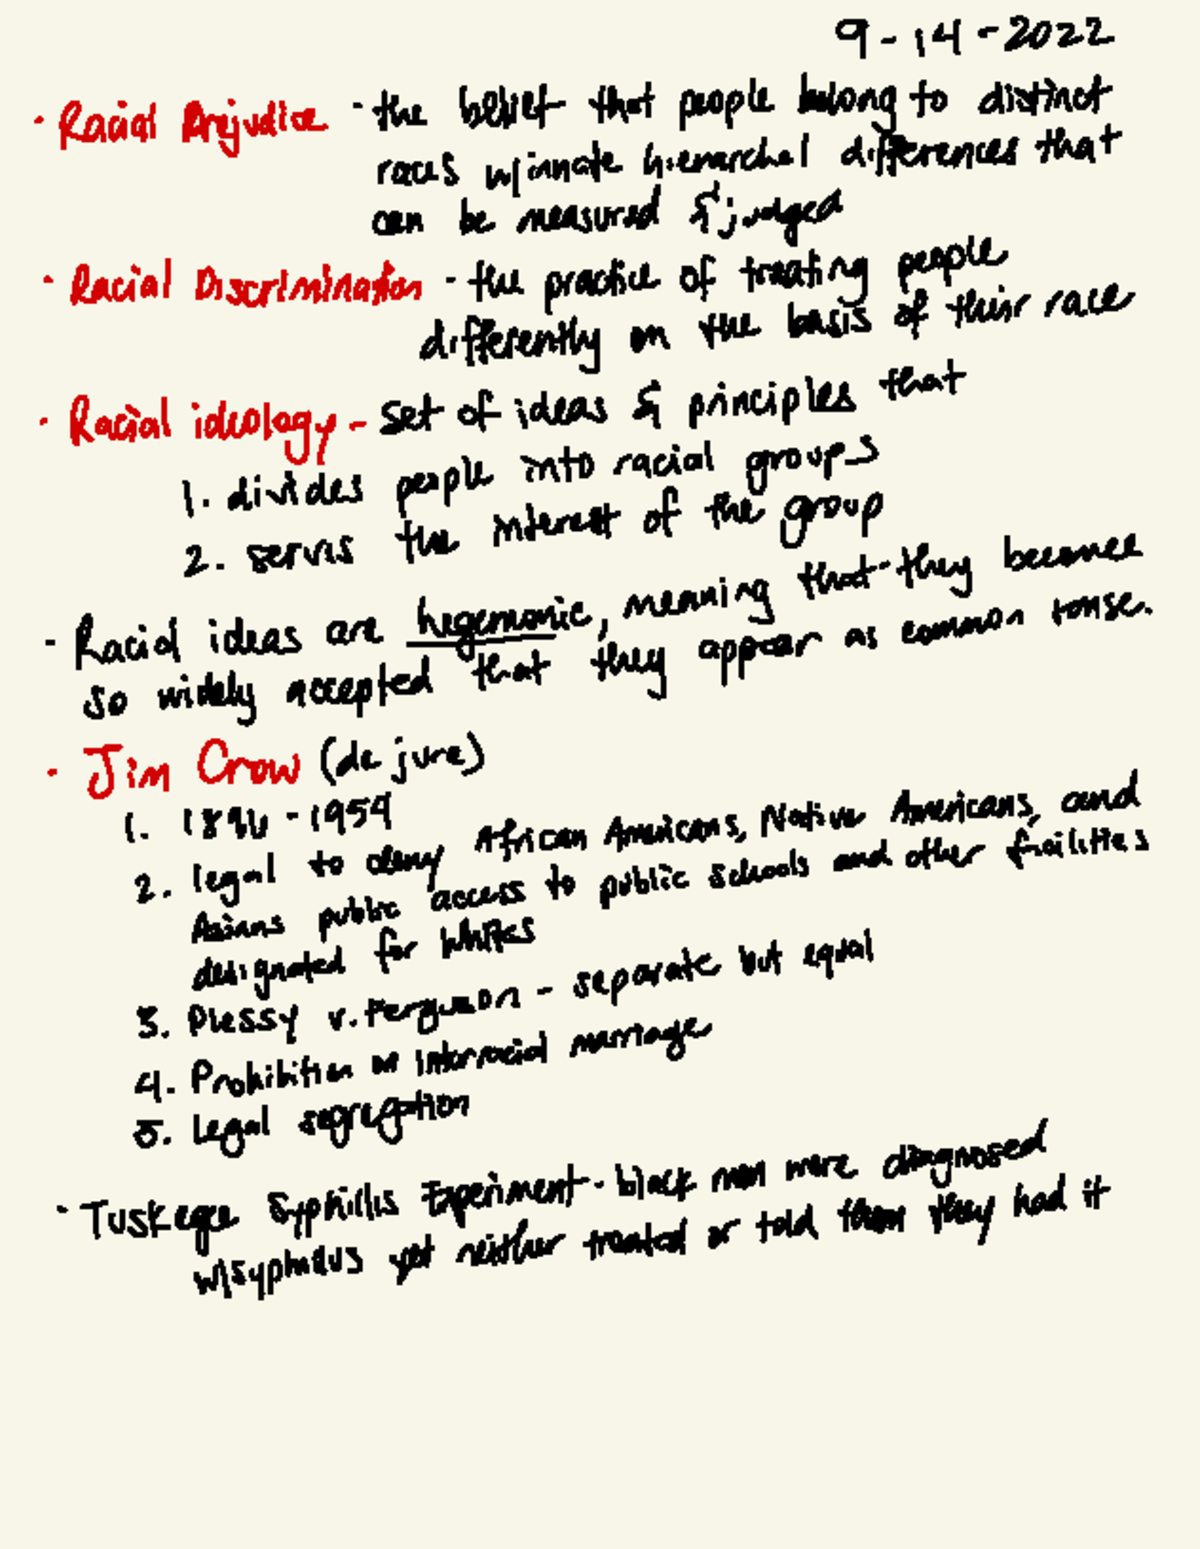 9-14-2022
· Racial Prejudice - the belief that people belong to distinct
races w/innate hierarchal differences that
can be measured & judged
· Racial Discrimination - the practice of treating people
differently on the basis of their race
· Racial ideology - set of ideas & principles that
1. divides people into racial groups
2. serves the interest of the group
- Racial ideas are hegemonic, meaning that they become
so widely accepted that they appear as common sense.
· Jim Crow (de jure)
1. 1896-1954
2. legal to deny African Americans, Native Americans, and
Asians public access to public schools and other facilities
designated for whites
3. Plessy v. Ferguson - separate but equal
4. Prohibition on interracial marriage
5. Legal segregation
· Tuskegee Syphillis Experiment - black men were diagnosed
w/ yet neither treated or told them they had it